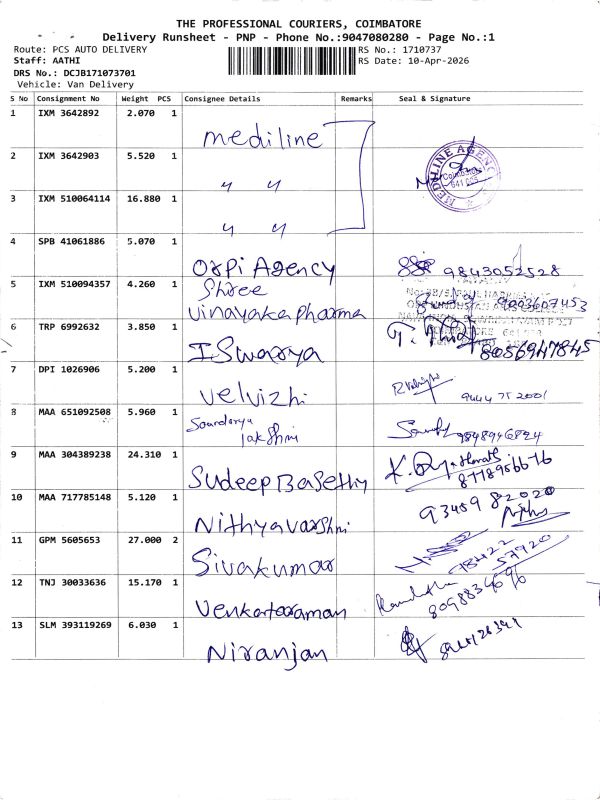 THE PROFESSIONAL COURIERS, COIMBATORE
Delivery Runsheet - PNP - Phone No.:9047080280 - Page No.:1
Route: PCS AUTO DELIVERY
RS No.: 1710737
Staff: AATHI
RS Date: 10-Apr-2026
DRS No.: DCJB171073701
Vehicle: Van Delivery
S No Consignment No Weight PCS Consignee Details Remarks Seal & Signature
1 IXM 3642892 2.070 1 mediline
2 IXM 3642903 5.520 1 " " MEDILINE AGENC Coimbatore 641 005
3 IXM 510064114 16.880 1 " "
4 SPB 41061886 5.070 1 Orpi Agency 9843052528
5 IXM 510094357 4.260 1 Shree
Vinayaka pharma 9003607453
6 TRP 6992632 3.850 1 ISwarya 8056947845
7 DPI 1026906 5.200 1 Velvizhi 9444 75 2001
8 MAA 651092508 5.960 1 Soundarya
lakshmi
9 MAA 304389238 24.310 1 Sudeep Basethy
10 MAA 717785148 5.120 1 Nithyavarshni 93459 82020
11 GPM 5605653 27.000 2 Sivakumar 78422
57920
12 TNJ 30033636 15.170 1 Venkartaraman
13 SLM 393119269 6.030 1 Niranjan